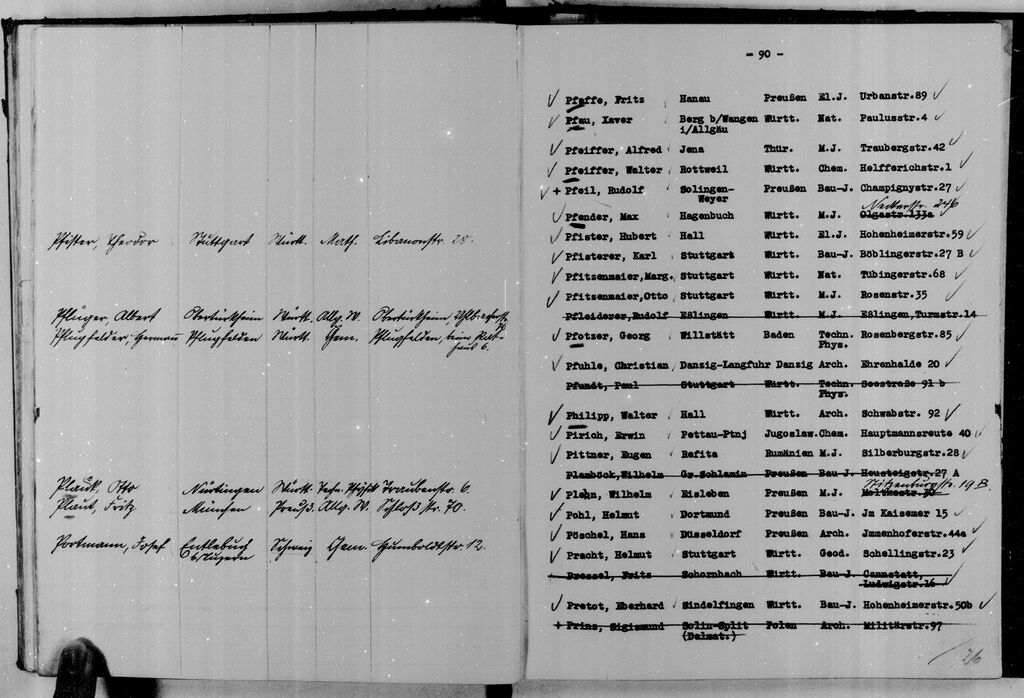 Pfister, Theodor Stuttgart Württ. Math. Libanonstr. 28.
Pflüger, Albert Obertürkheim Württ. Allg. W. Obertürkheim,
Pflugfelder, Hermann Pflugfelden Württ. Chem. Pflugfelden, beim Rat-
haus 6.
Plauk, Otto Nürtingen Württ. Techn. Physik Traubenstr. 6.
Plaut, Fritz München Preuß. Allg. W. Schloßstr. 70.
Portmann, Josef Entlebuch Schweiz Chem. Humboldtstr. 12.
b/Luzern
- 90 -
Pfaffe, Fritz Hanau Preußen El.J. Urbanstr.89
Pfau, Xaver Berg b/Wangen Württ. Nat. Paulusstr.4
i/Allgäu
Pfeiffer, Alfred Jena Thür. M.J. Traubergstr.42
Pfeiffer, Walter Rottweil Württ. Chem. Helfferichstr.1
+ Pfeil, Rudolf Solingen- Preußen Bau-J. Champignystr.27
Weyer
Neckarstr. 246
Pfender, Max Hagenbuch Württ. M.J. Olgastr.133a
Pfister, Hubert Hall Württ. El.J. Hohenheimerstr.59
Pfisterer, Karl Stuttgart Württ. Bau-J. Böblingerstr.27 B
Pfitzenmaier,Marg. Stuttgart Württ. Nat. Tübingerstr.68
Pfitzenmaier,Otto Stuttgart Württ. M.J. Rosenstr.35
Pfleiderer,Rudolf Eßlingen Württ. M.J. Eßlingen,Turmstr.14
Pfotzer, Georg Willstätt Baden Techn. Rosenbergstr.85
Phys.
Pfuhle, Christian Danzig-Langfuhr Danzig Arch. Ehrenhalde 20
Pfundt, Paul Stuttgart Württ. Techn. Seestraße 91 b
Phys.
Philipp, Walter Hall Württ. Arch. Schwabstr. 92
Pirich, Erwin Pettau-Ptnj Jugoslaw. Chem. Hauptmannsreute 40
Pittner, Eugen Refita Rumänien M.J. Silberburgstr.28
Plamböck,Wilhelm Gr.Schlamin Preußen Bau-J. Heusteigstr.27 A
Sitzenburgstr. 19 B.
Plehn, Wilhelm Eisleben Preußen M.J.
Pohl, Helmut Dortmund Preußen Bau-J. Jm Kaisemer 15
Pöschel, Hans Düsseldorf Preußen Arch. Jmmenhoferstr.44a
Pracht, Helmut Stuttgart Württ. Geod. Schellingstr.23
Pressel, Fritz Schornbach Württ. Bau-J. Cannstatt,
Ludwigstr.16
Pretot, Eberhard Sindelfingen Württ. Bau-J. Hohenheimerstr.50b
+ Prinz, Sigismund Solin-Split Polen Arch. Militärstr.97
(Dalmat.)
26